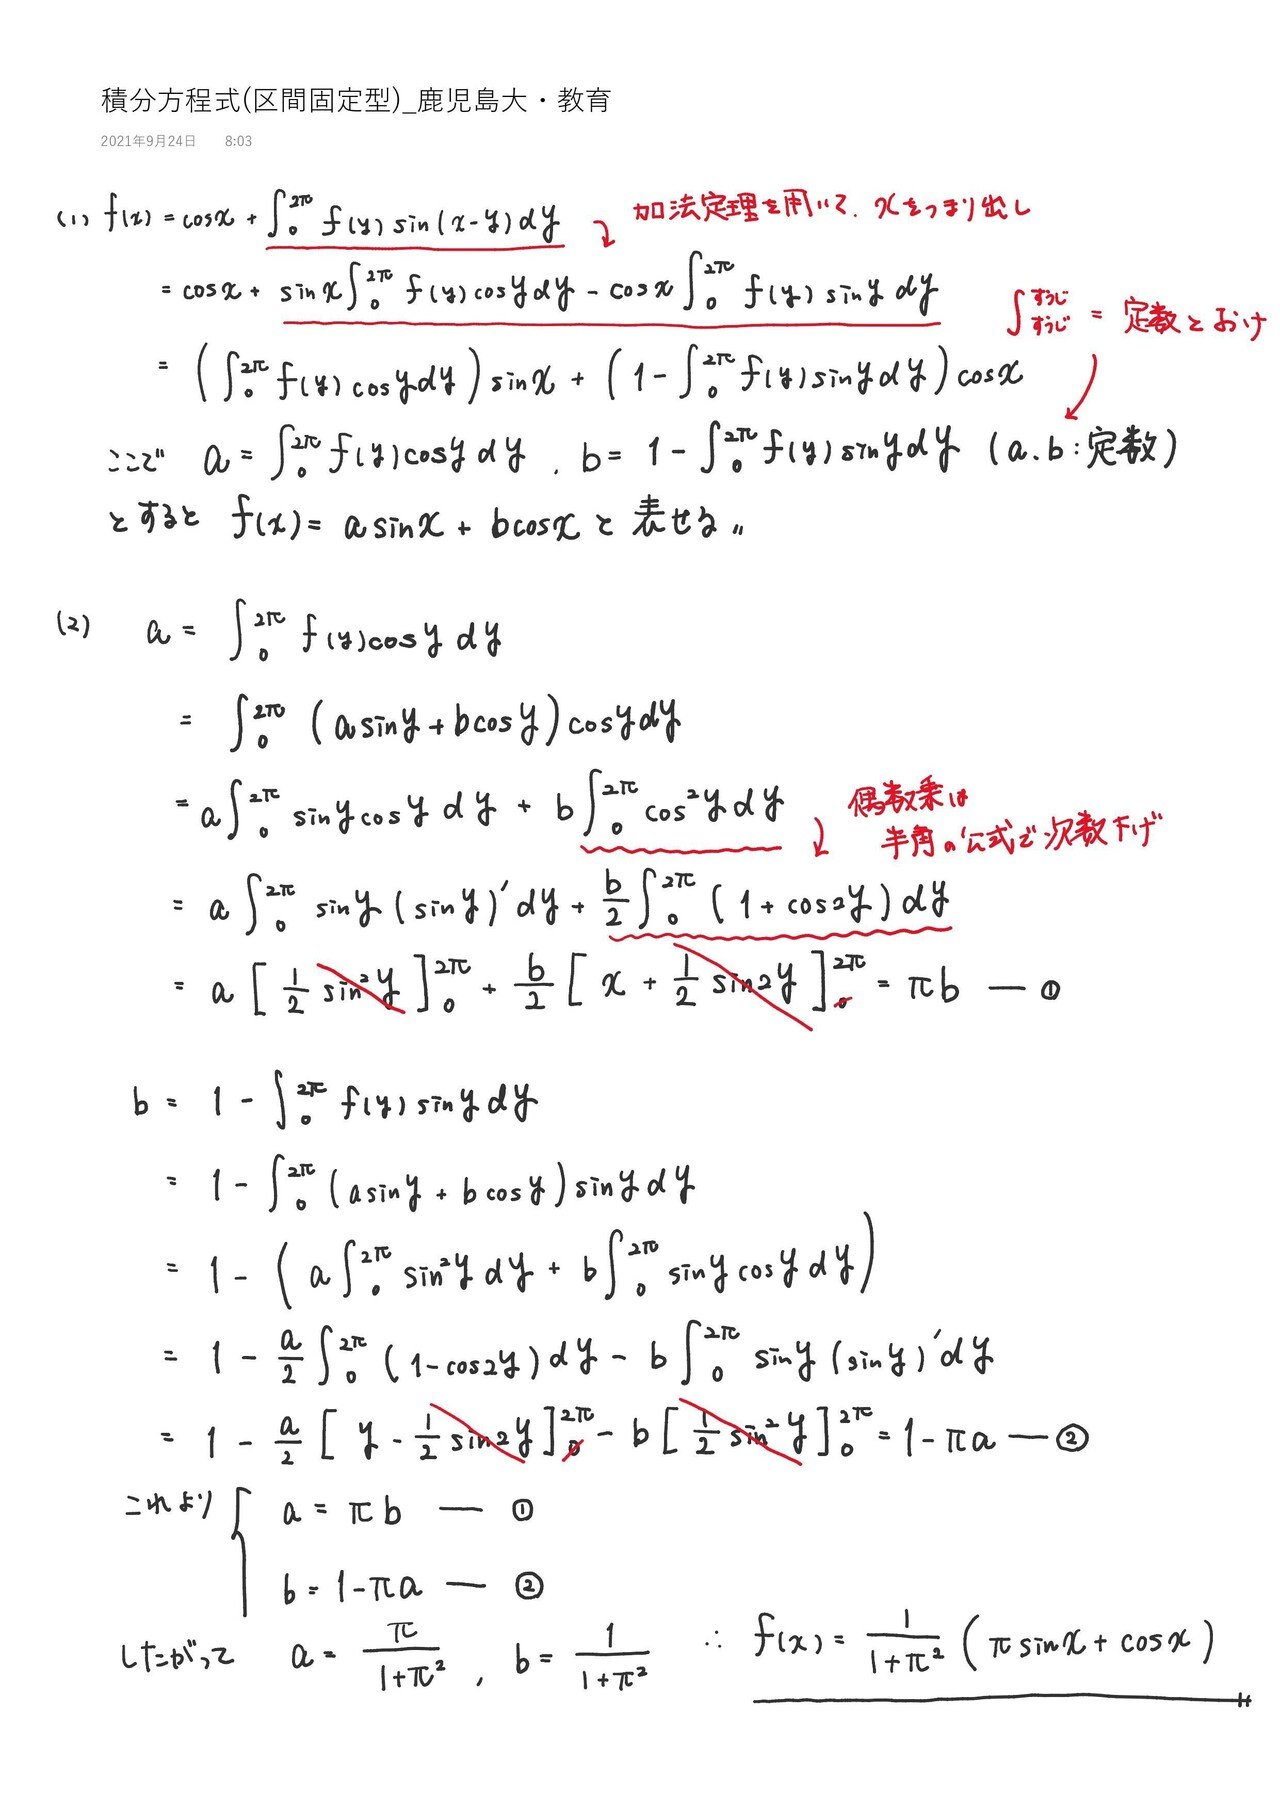 積分方程式(区間固定型)_鹿児島大・教育
2021年9月24日 8:03
(1) f(x) = cosx + ∫₀^{2π} f(y) sin(x-y)dy
加法定理を用いて、xをつまり出し
= cosx + sinx∫₀^{2π} f(y)cosydy - cosx∫₀^{2π} f(y) siny dy
∫_{すうじ}^{すうじ} = 定数とおけ
= (∫₀^{2π} f(y) cosydy) sinx + (1 - ∫₀^{2π} f(y)sinydy) cosx
ここで a = ∫₀^{2π} f(y)cosy dy , b = 1 - ∫₀^{2π} f(y)sinydy (a.b:定数)
とすると f(x) = a sinx + bcosx と表せる〃
(2) a = ∫₀^{2π} f(y)cosy dy
= ∫₀^{2π} (asiny + bcosy)cosydy
= a∫₀^{2π} sinycosy dy + b∫₀^{2π} cos²ydy
偶数乗は
半角の公式で次数下げ
= a∫₀^{2π} siny(siny)′dy + b/2 ∫₀^{2π} (1 + cos2y)dy
= a[1/2 sin²y]₀^{2π} + b/2 [x + 1/2 sin2y]₀^{2π} = πb — ①
b = 1 - ∫₀^{2π} f(y) sinydy
= 1 - ∫₀^{2π} (asiny + bcosy)sinydy
= 1 - (a∫₀^{2π} sin²ydy + b∫₀^{2π} sinycosydy)
= 1 - a/2 ∫₀^{2π} (1-cos2y)dy - b∫₀^{2π} siny(siny)′dy
= 1 - a/2 [y - 1/2 sin2y]₀^{2π} - b[1/2 sin²y]₀^{2π} = 1-πa — ②
これより { a = πb — ①
b = 1-πa — ②
したがって a = π/(1+π²) , b = 1/(1+π²) ∴ f(x) = 1/(1+π²) (πsinx + cosx)